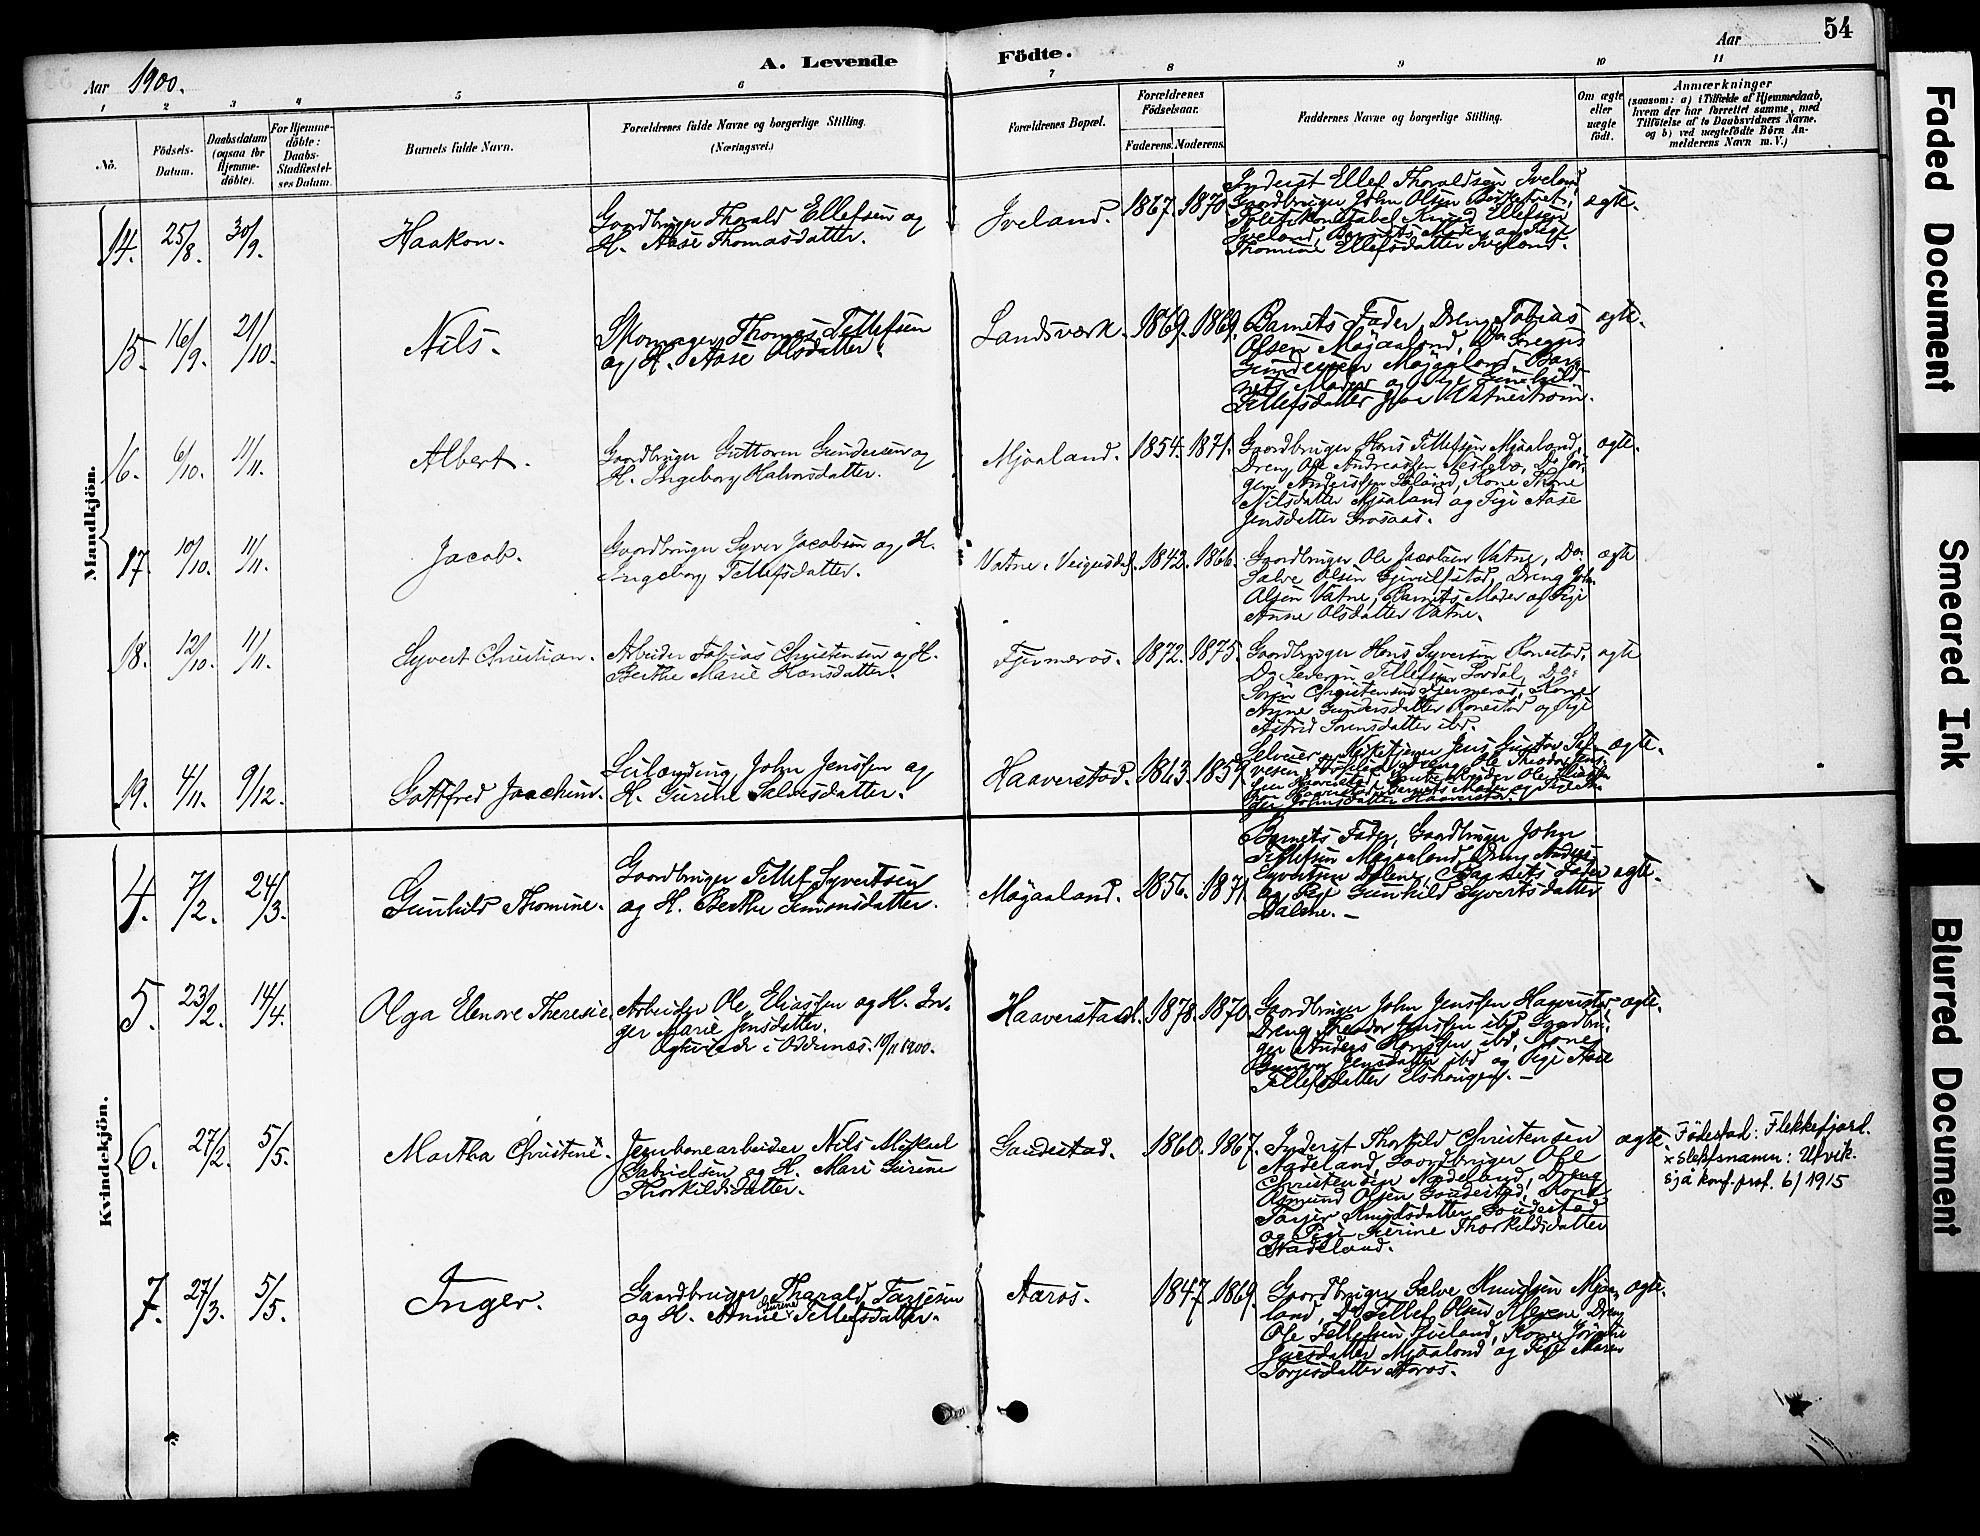 54
Aar 1900.
A. Levende Födte.
Aar
1 2 3 4 5 6 7 8 9 10 11
Nô.
Födsels-
Datum.
Daabsdatum
(ogsaa for
Hjemme-
döbte).
For Hjemme-
döbte:
Daabs-
Stadfæstel-
ses Datum.
Barnets fulde Navn.
Forældrenes fulde Navne og borgerlige Stilling.
(Næringsvei.)
Forældrenes Bopæl.
Forældrenes
Födselsaar.
Faderens. Moderens.
Faddernes Navne og borgerlige Stilling.
Om ægte
eller
uægte
født.
Anmærkninger
(saasom: a) i Tilfælde af Hjemmedaab,
hvem der har forrettet samme, med
Tilföielse af to Daabsvidners Navne,
og b) ved uægtefödte Börn An-
melderens Navn m. V.)
Mandkjön.
14. 25/8. 30/9.
Haakon.
Gaardbruger Tharald Ellefsen og
H. Aase Thomasdatter.
Iveland. 1867. 1870.
Inderst Ellef Tharaldsen Iveland,
Gaardbruger John Olsen Birketvet,
Politikonstabel Knud Ellefsen
Iveland, Barnets Moder og Pige
Thomine Ellefsdatter Iveland.
ægte.
15. 16/9. 21/10.
Nils.
Skomager Thomas Tellefsen
og H. Aase Olsdatter.
Landsværk. 1869. 1869.
Barnets Fader, Dreng Tobias
Olsen Mojaaland, Do Gregus
Gundersen Mojaaland, Bar-
nets Moder og Pige Gunhild
Tellefsdatter Vatnestrøm.
ægte.
16. 6/10. 11/11.
Albert.
Gaardbruger Guttorm Gundersen og
H. Ingeborg Halvorsdatter.
Mjaaland. 1854. 1871.
Gaardbruger Hans Tellefsen Mjaaland,
Dreng Ole Andreassen Do Jör-
gen Anderssen Kone Thone
Nilsdatter Mjaaland og Pige Aase
Jensdatter Frosaas.
ægte.
17. 10/10. 11/11.
Jacob.
Gaardbruger Syver Jacobsen og H.
Ingeborg Tellefsdatter.
Vatne i Veigusdal. 1842. 1866.
Gaardbruger Ole Jacobsen Vatne, Do
Salve Olsen Gjervelfstad, Dreng John
Olsen Vatne, Barnets Moder og Pige
Anne Olsdatter Vatne.
ægte
18. 12/10. 11/11.
Syvert Christian.
Arbeider Tobias Christensen og H.
Berthe Marie Hansdatter.
Fjermeros. 1872. 1875.
Gaardbruger Hans Syversen Ronestad,
Do Severin Tellefsen Do
Sorin Christensen Fjermeros, Kone
Anne Gundersdatter Ronestad og Pige
Astrid Sorensdatter ibd.
ægte
19. 4/11. 9/12.
Gottfred Joachim.
John Jenssen og
H. Gurine Salvesdatter.
Haaverstad. 1863. 1859.
Selveier og Kirketjener Jens Gustav Sal-
vesen
Johnsdatter Haaverstad.
ægte.
Kvindekjön.
4. 7/2. 24/3.
Gunhild Thomine.
Gaardbruger Tellef Syvertsen
og H. Berthe Simonsdatter.
Mojaaland. 1856. 1871.
Barnets Fader, Gaardbruger John
Tellefsen Mojaaland, Dreng Anders
Syvertsen Dalene, Barnets Fader
og Pige Gunhild Syvertsdatter
Dalene. —
ægte.
5. 23/2. 14/4.
Olga Elenore Theresie.
Arbeider Ole Eliassen og H. In-
ger Marie Jensdatter.
Ægteviede i Oddernæs. 10/11 1900.
Haaverstad. 1878. 1870.
Gaardbruger John Jenssen Haaverstad,
Dreng Theodor Jenssen ibd, Gaardbru-
ger Anders Hanssen ibd, Kone
Jensdatter ibd og Pige Aase
Tellefsdatter —
ægte.
6. 27/2. 5/5.
Martha Christine. x
Jernbanearbeider Nils Mikael
Gabrielsen og H. Mari Gurine
Thorkildsdatter.
Gaudestad. 1860. 1867.
Inderst Thorkild Christensen
Nadeland, Gaardbruger Ole
Christensen Nadeland, Dreng
Osmund Olsen Gaudestad, Kone
Tarjer Knudsdatter Gaudestad
og Pige Gurine Thorkildsdatter
Nadeland.
ægte
Födestad: Flekkefjord.
x slektsnamn: Utvik.
sjå konf. prot. 6/1915
7. 27/3. 5/5.
Inger.
Gaardbruger Tharald Tarjesen
og H. Anne Gurine Tellefsdatter.
Aaros. 1847. 1869.
Gaardbruger Salve Knudsen Mjaa-
land, Do Tellef Olsen Klevene, Dreng
Ole Tellefsen Kone Jörgine
Mjaaland og Pige Maren
Torjesdatter Aaros.
ægte.
Faded Document
Smeared Ink
Blurred Document